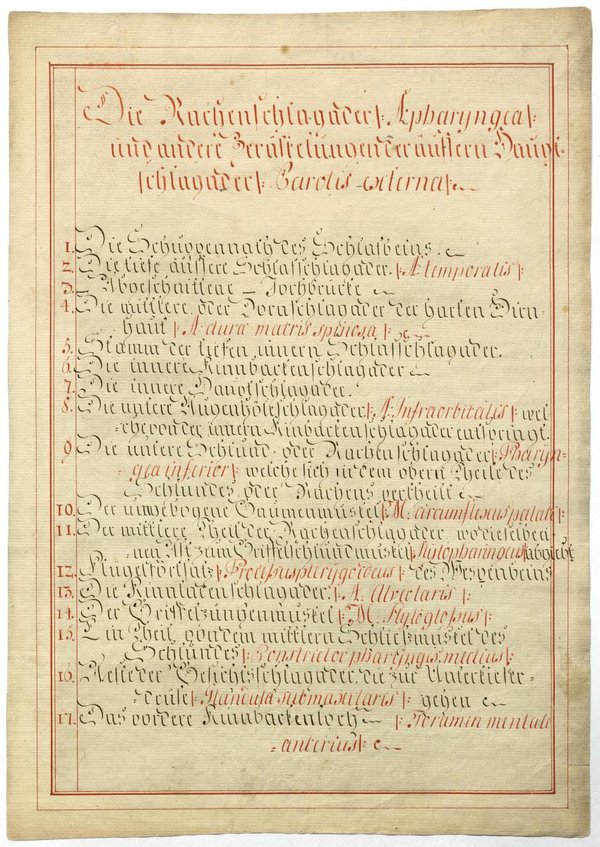 Die Rachenschlagader /: A. pharyngea :/
und andere Zerästelungen der äussern Haupt-
schlagader /: Carotis externa :/
1. Die Schuppennath des Schlafbeins.
2. Die tiefe äussere Schlafschlagader. /: A. temporalis :/
3. Abgeschnittene Jochbrücke
4. Die mittlere oder Dornschlagader der harten Hirn-
haut /: A. dura matris spinosa :/
5. Stamm der tiefen innern Schlafschlagader.
6. Die innere Kinnbackenschlagader
7. Die innere Hauptschlagader.
8. Die untere Augenhöleschlagader /: A. Infraorbitalis :/ wel-
che von der innern Kinbackenschlagader entspringt.
9. Die untere Schlund- oder Rachenschlagader /: Pharyn-
gea inferior :/ welche sich in dem obern Theile des
Schlundes oder Rachens vertheilt
10. Der umgebogene Gaumenmuskel /: M. circumflexus palati :/
11. Der mittlere Theil der Rachenschlagader, wo dieselbe ei-
nen Ast zum Griffelschlundmuskel /: Stylopharingeus :/ abgiebt
12. Flügelfortsatz /: Processus pterygoideus :/ des Wespenbeins
13. Die Kinnladenschlagader /: A. Alveolaris :/
14. Der Griffelzungenmuskel /: M. Styloglossus :/
15. Ein Theil von dem mittlern Schließmuskel des
Schlundes /: Constrictor pharyngis medius :/
16. Aeste der Gesichtsschlagader, die zur Unterkiefer-
drüse /: Glandula submaxilaris :/ gehen
17. Das vordere Kinnbackenloch /: Foramen mentale
anterius :/